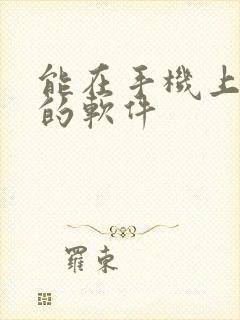 能在手機上
的軟件
羅束